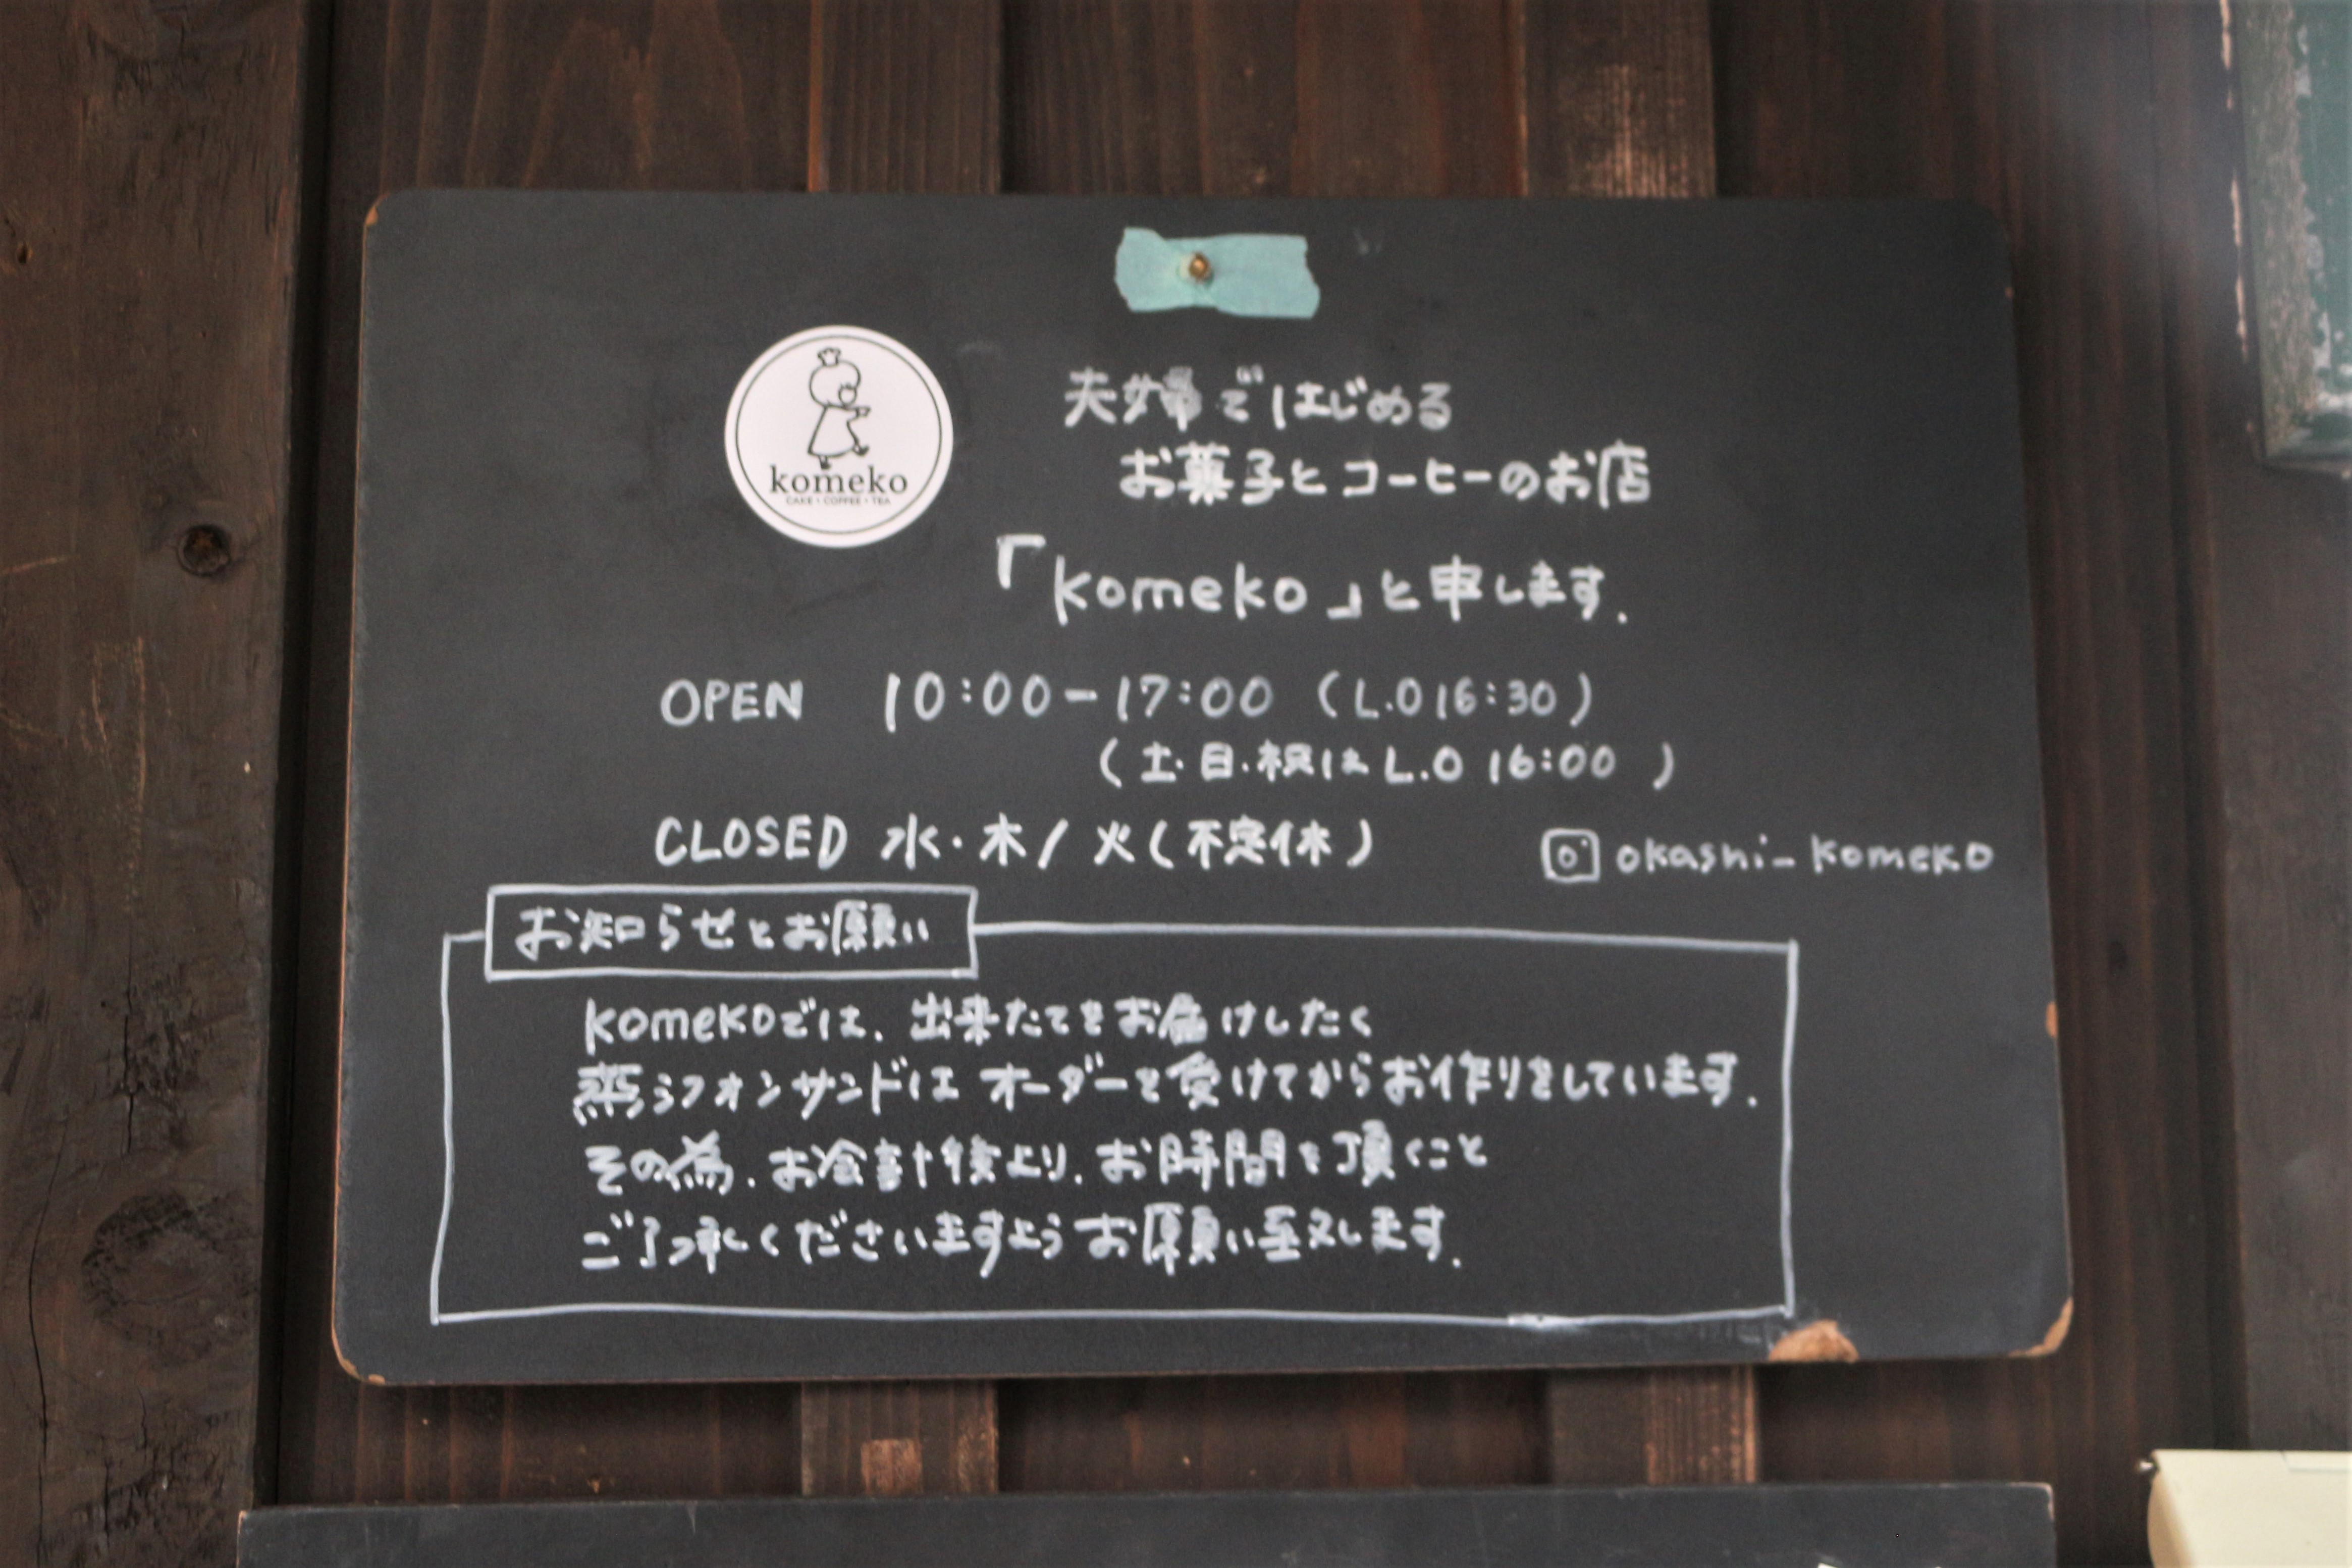 komeko
CAKE・COFFEE・TEA
夫婦ではじめる
お菓子とコーヒーのお店
「komeko」と申します.
OPEN 10:00-17:00 (L.O 16:30)
(土・日・祝は L.O 16:00 )
CLOSED 水・木/火(不定休)
okashi_komeko
お知らせとお願い
komekoでは、出来たてをお届けしたく
蒸シフォンサンドは オーダーを受けてからお作りをしています.
その為、お会計後より、お時間を頂くこと
ご了承くださいますよう お願い致します.